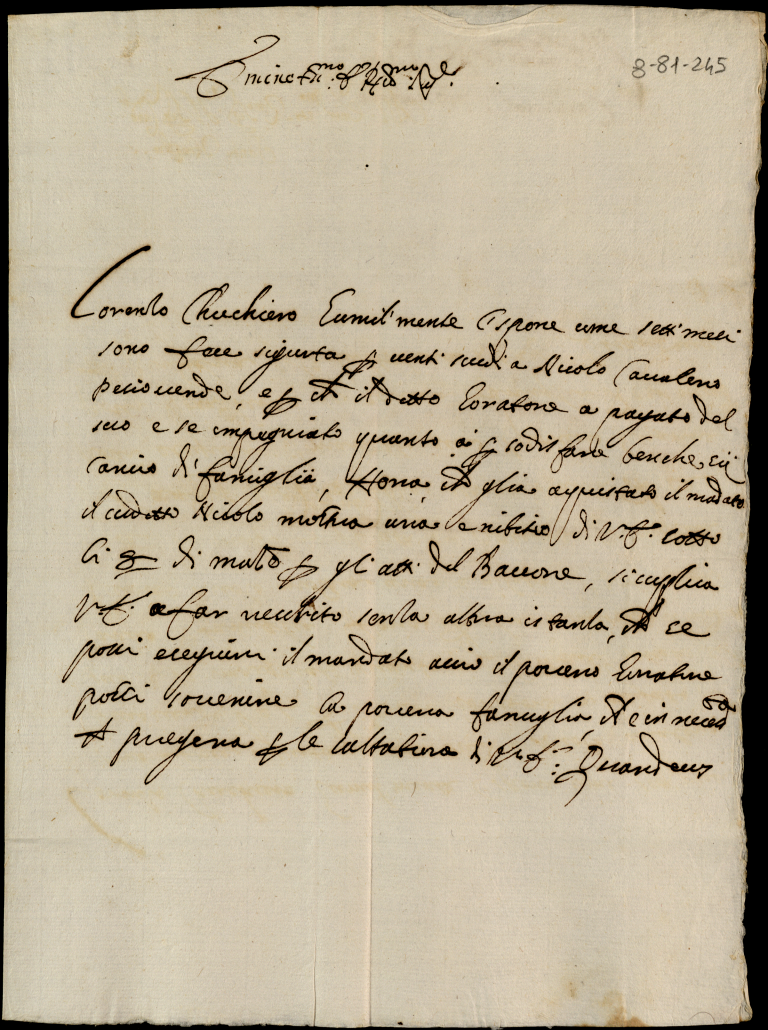 8-81-245
Eminent.mo e R.mo Sig.re
Lorenzo Chechiero Eumilmente espone come setti mesi
sono fece sigurta p venti scudi a Nicolo Cavalero
pesciovende, e p ch il ditto Eoratore a pagato del
suo e se impegniato quanto ai p sodisfare benche sii
carico di famiglia, Hora ch glia aquistato il madato
il cuditto Nicolo mostra una enibitio di V.E. sotto
li 8 di p gli atti del Barone, si cuplica
V.E. a far rescrito senza altra istanza, ch se
possi eseguire il mandato acio il povero Eoratore
possi sovenire la povera famiglia, ch e in necess.ta
ch pregera p le di V.E. Quam Deus